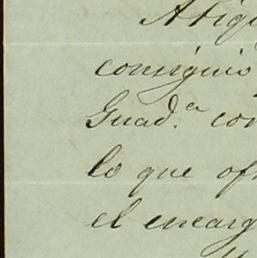 Atiqu
consiguio
Guad.ª con
lo que of
el encarg